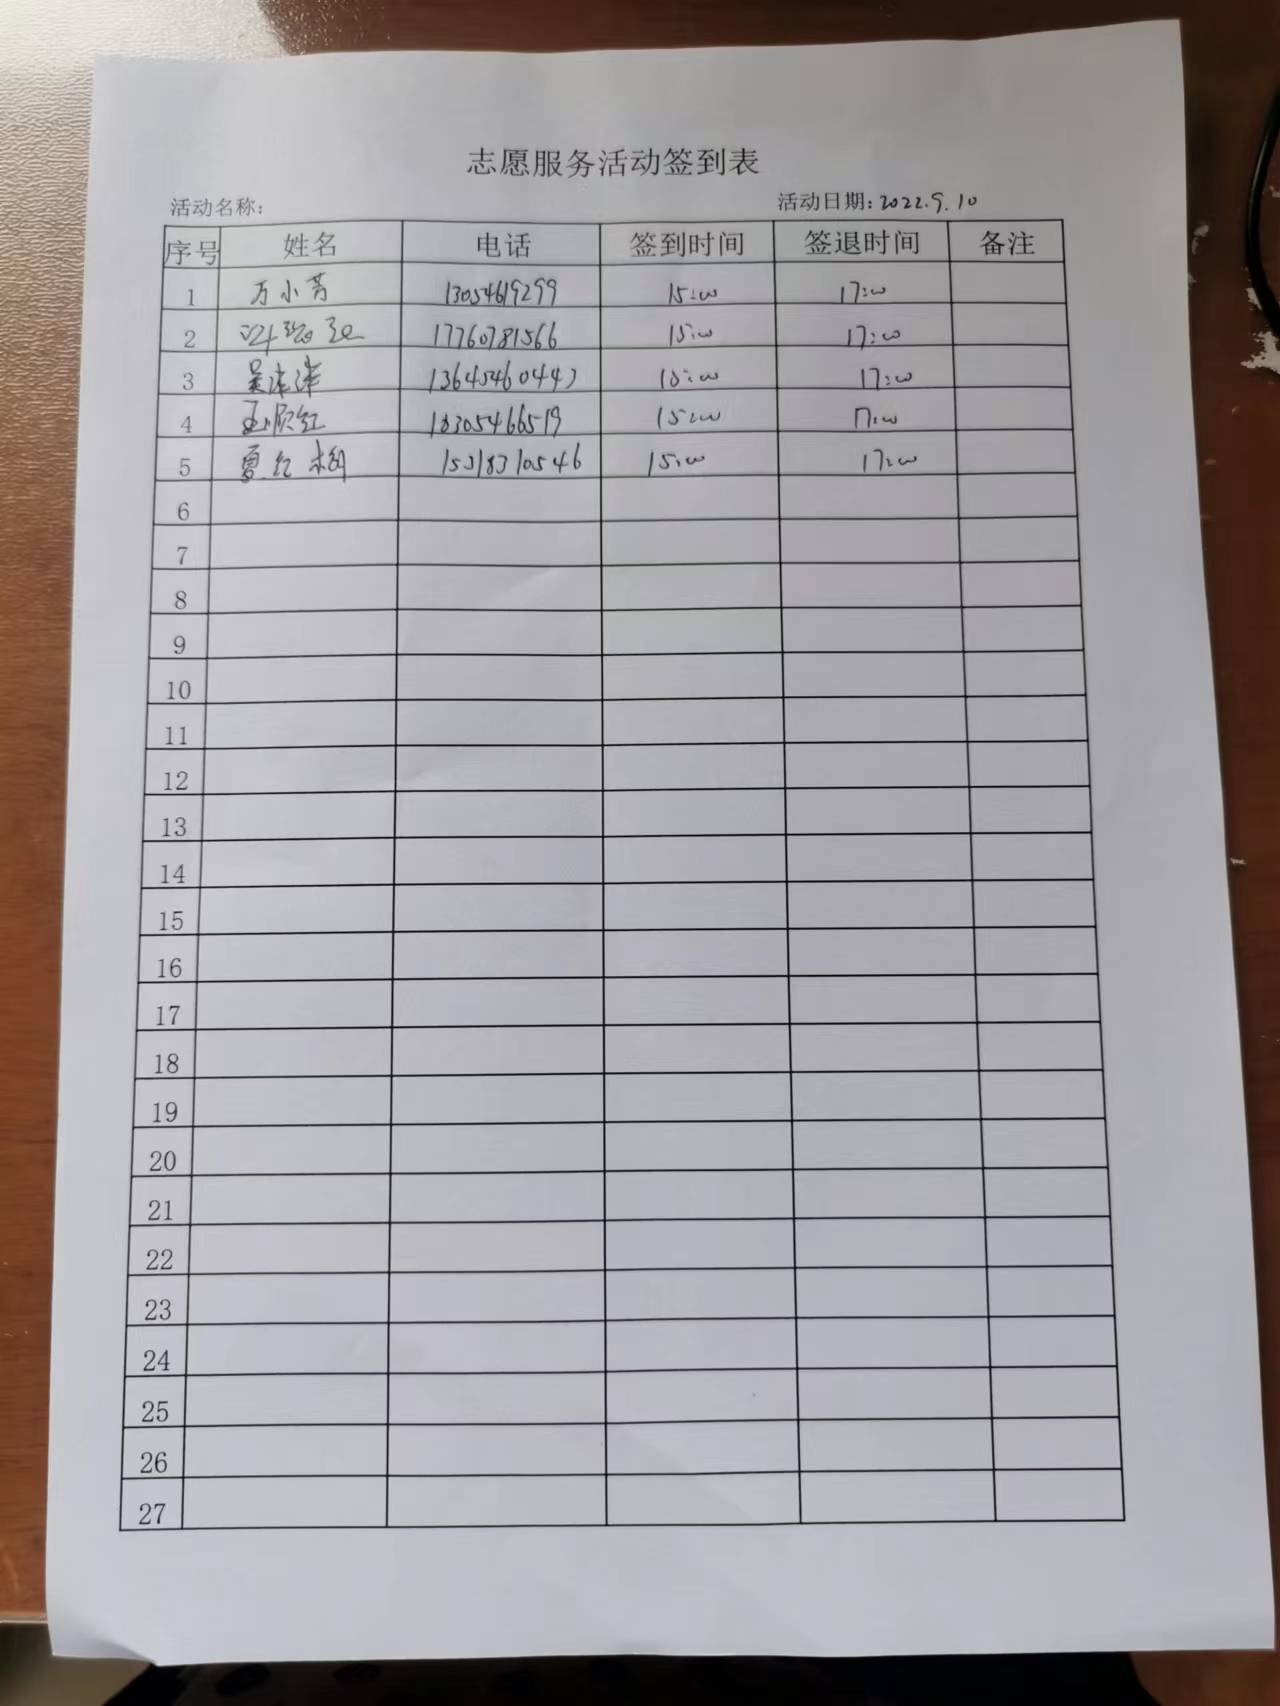 志愿服务活动签到表
活动名称: 活动日期: 2022.9.10
序号 姓名 电话 签到时间 签退时间 备注
1 万小芳 13054619299 15:00 17:00
2 17760781566 15:00 17:00
3 吴 1364546044 15:00 17:00
4 红 18305466519 15:00 17:00
5 夏红梅 15318310546 15:00 17:00
6
7
8
9
10
11
12
13
14
15
16
17
18
19
20
21
22
23
24
25
26
27